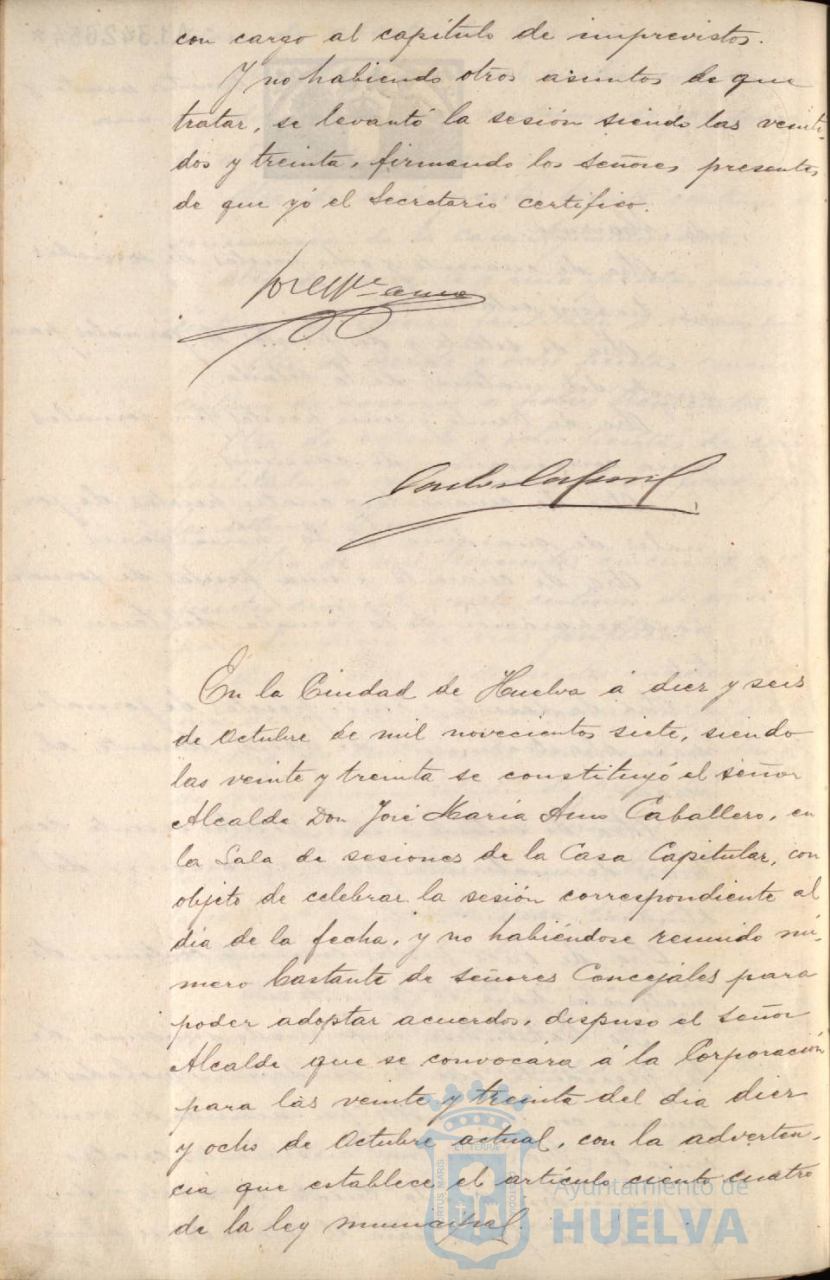 con cargo al capítulo de imprevistos.
Y no habiendo otros asuntos de que
tratar, se levantó la sesión siendo las veinti-
dos y treinta, firmando los señores presentes
de que yó el Secretario certifico.
En la Ciudad de Huelva á diez y seis
de Octubre de mil novecientos siete, siendo
las veinte y treinta se constituyó el señor
Alcalde Don José María Amo Caballero, en
la Sala de sesiones de la Casa Capitular, con
objeto de celebrar la sesión correspondiente al
día de la fecha, y no habiéndose reunido nú-
mero bastante de señores Concejales para
poder adoptar acuerdos, dispuso el señor
Alcalde que se convocára á la Corporación
para las veinte y treinta del dia diez
y ocho de Octubre actual, con la adverten-
cia que establece el artículo ciento cuatro
de la ley municipal.
Ayuntamiento de
HUELVA